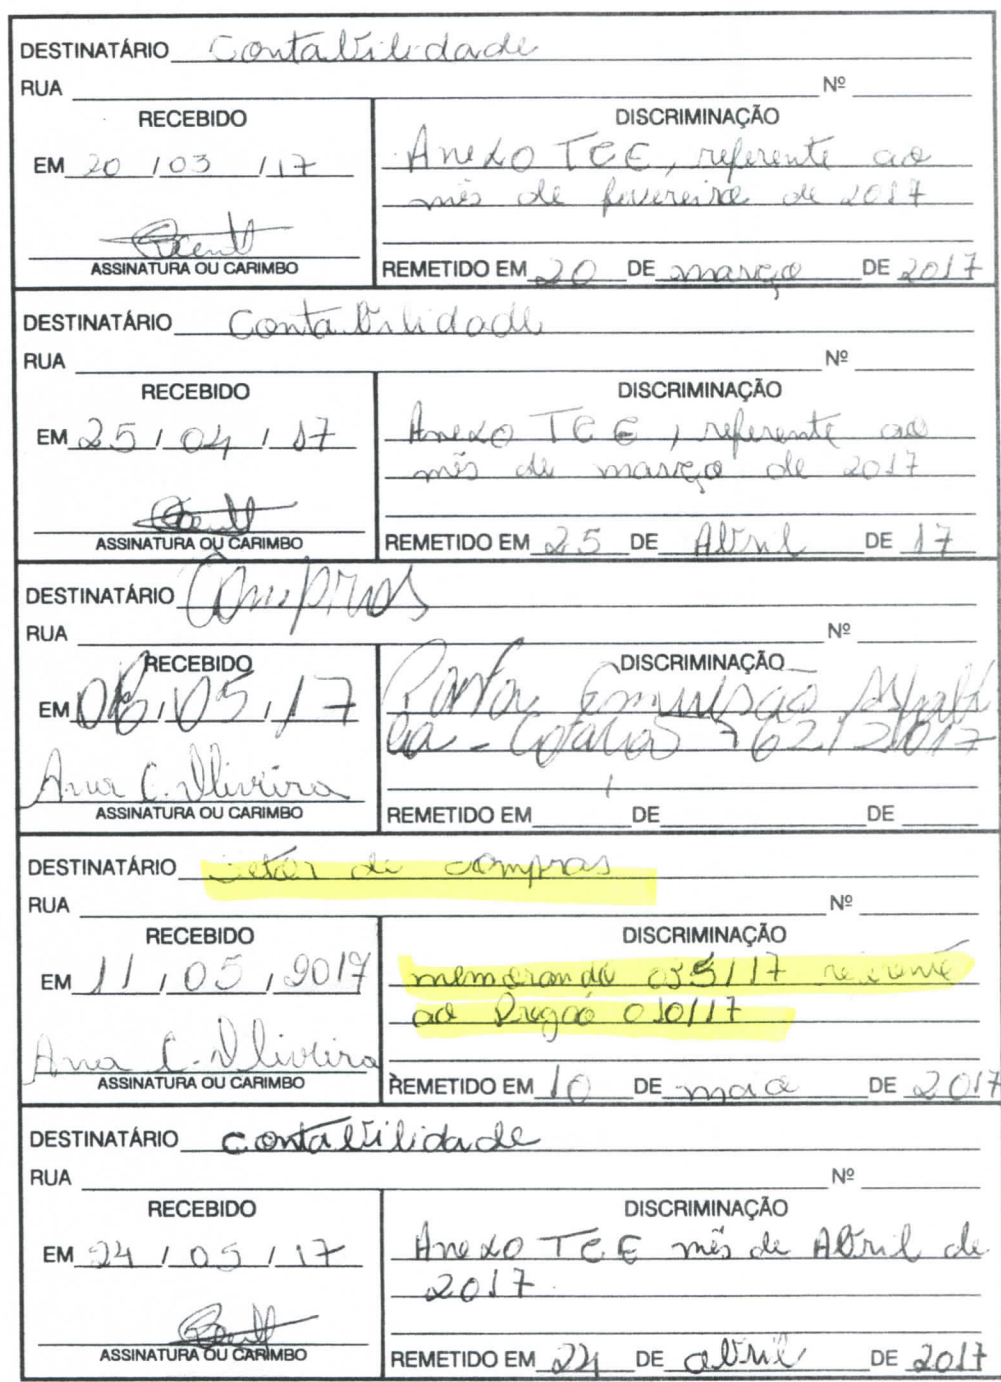 DESTINATÁRIO Contabilidade
RUA Nº
RECEBIDO
EM 20 / 03 / 17
ASSINATURA OU CARIMBO
DISCRIMINAÇÃO
Anexo TCE, referente ao
mês de fevereiro de 2017
REMETIDO EM 20 DE março DE 2017
DESTINATÁRIO Contabilidade
RUA Nº
RECEBIDO
EM 25 / 04 / 17
ASSINATURA OU CARIMBO
DISCRIMINAÇÃO
Anexo TCE, referente ao
mês de março de 2017
REMETIDO EM 25 DE Abril DE 17
DESTINATÁRIO Compras
RUA Nº
RECEBIDO
EM 08 / 05 / 17
Ana C. Oliveira
ASSINATURA OU CARIMBO
DISCRIMINAÇÃO
Emulsão
762/2017
REMETIDO EM DE DE
DESTINATÁRIO Setor de compras
RUA Nº
RECEBIDO
EM 11 / 05 / 2017
Ana C. Oliveira
ASSINATURA OU CARIMBO
DISCRIMINAÇÃO
memorando 035/17 referente
ao Pregão 010/17
REMETIDO EM 10 DE maio DE 2017
DESTINATÁRIO contabilidade
RUA Nº
RECEBIDO
EM 24 / 05 / 17
ASSINATURA OU CARIMBO
DISCRIMINAÇÃO
Anexo TCE mês de Abril de
2017.
REMETIDO EM 24 DE abril DE 2017